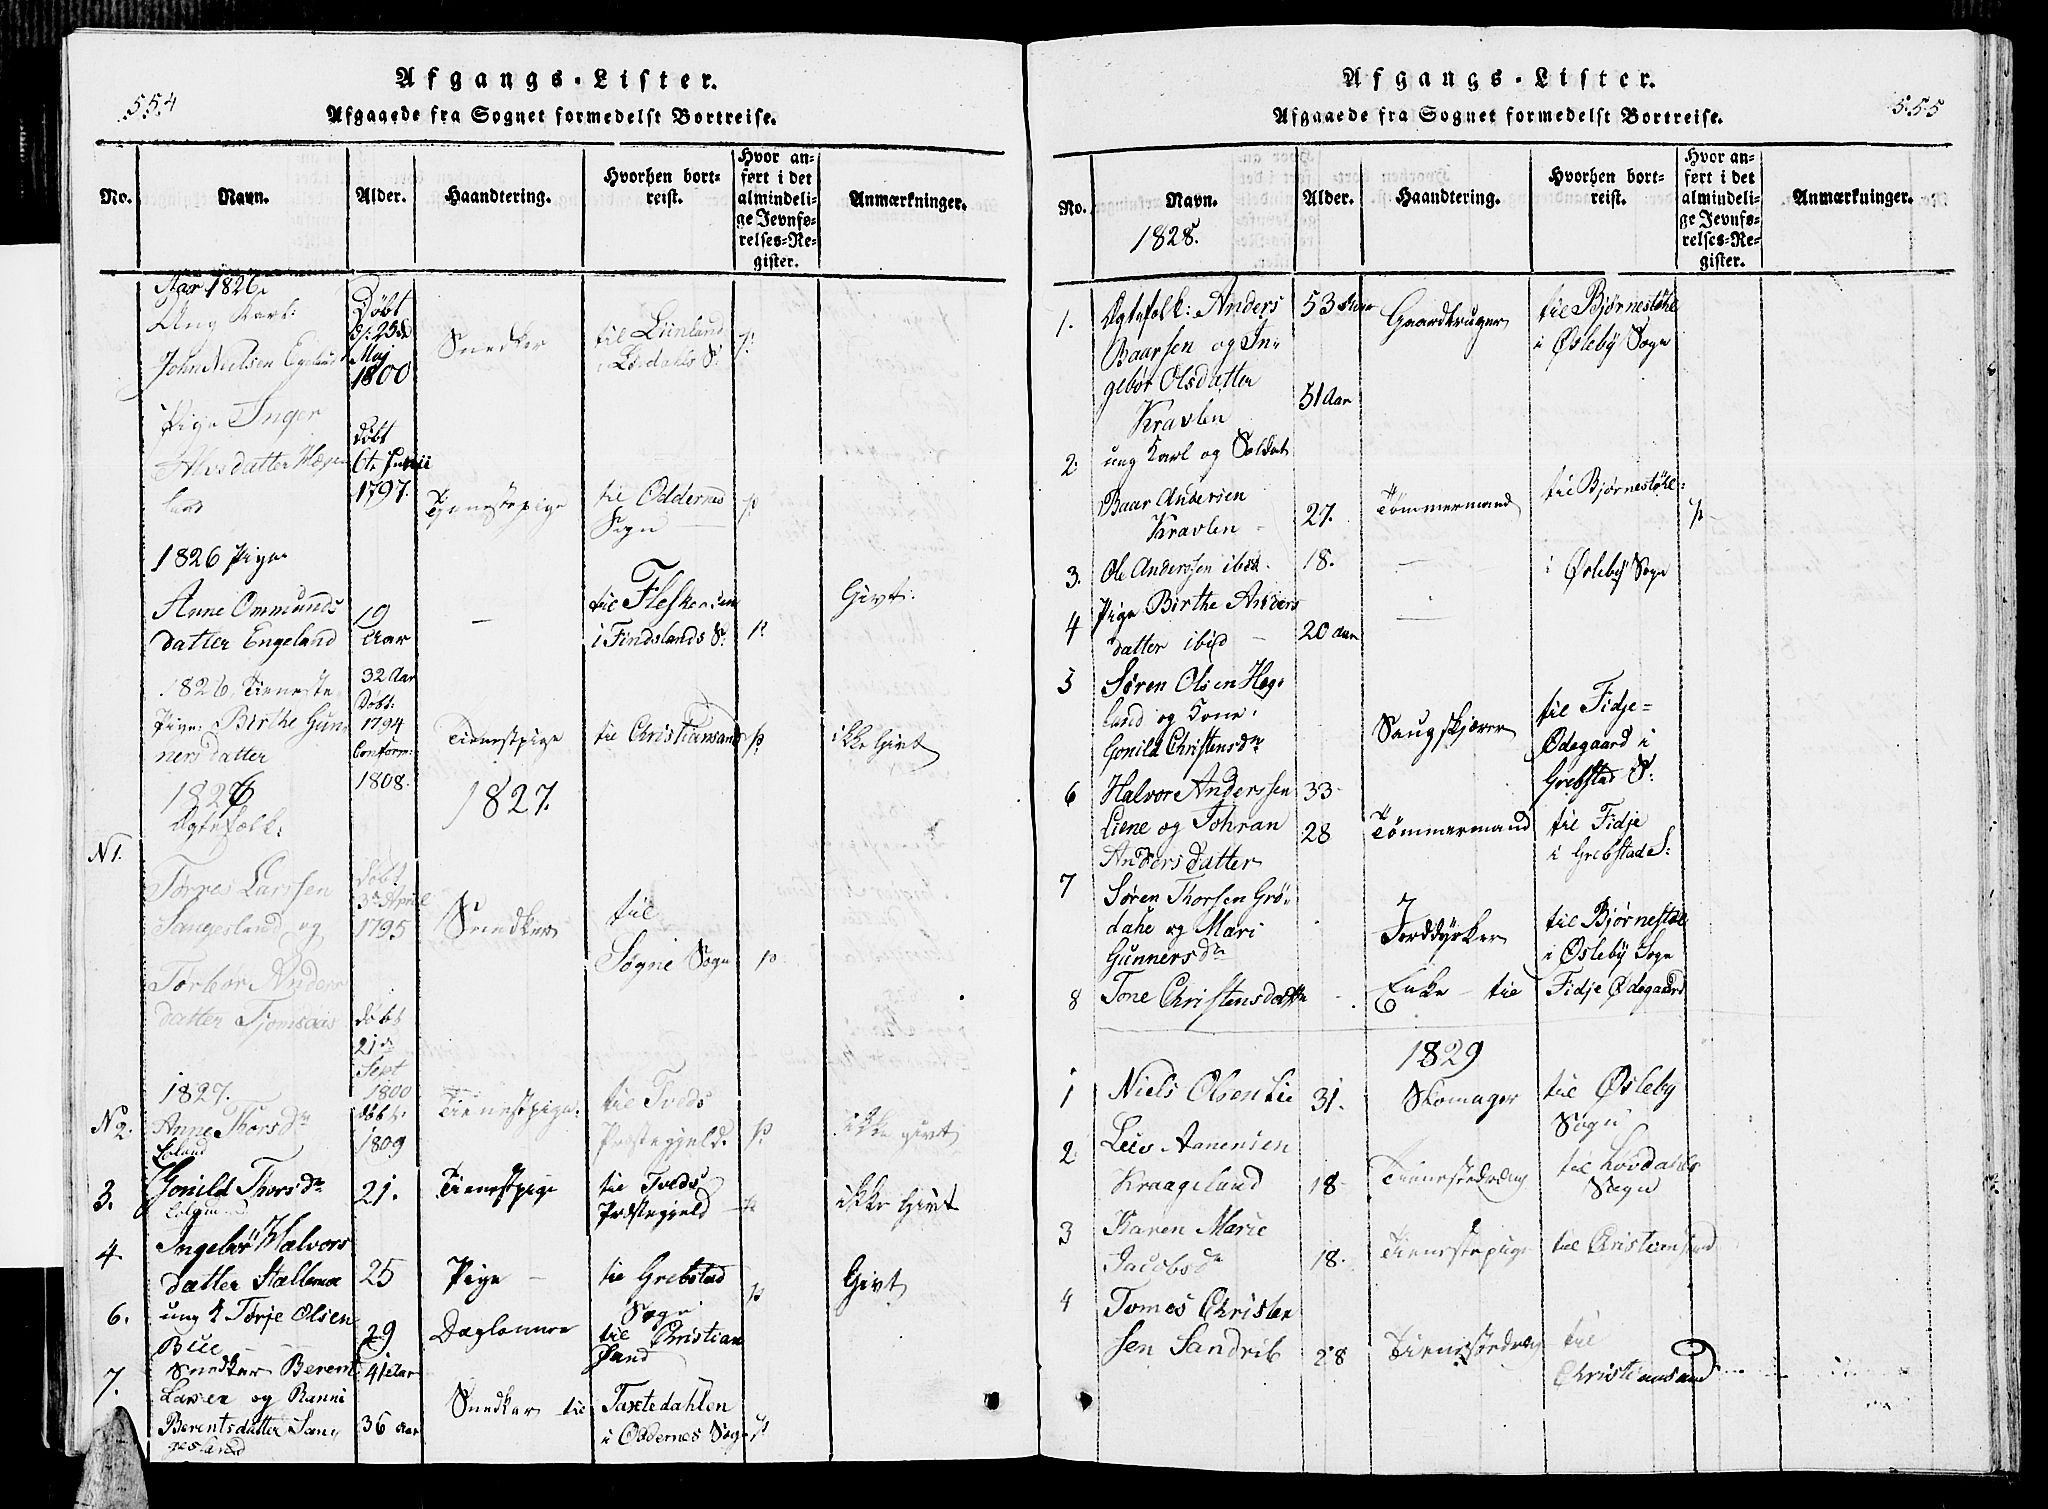 554
Afgangs-Lister.
Afgaaede fra Sognet formedelst Bortreise.
No.
Navn.
Alder.
Haandtering.
Hvorhen bort-
reist.
Hvor an-
ført i det
almindeli-
ge Jevnfø-
relses-Re-
gister.
Anmærkninger.
Aar 1826.
Ung Karl:
John Nielsen
Døbt
d: 25de
Maj
1800
Snedker
til
Pige Inger
datter
Døbt
6te Junii
1797.
Tjenestepige
til Oddernes
Sogn
1826 Pige
Anne Ommunds
datter Engeland
19
Aar
til
i Findslands S:
Givt.
1826 Tieneste
Pige: Birthe Gun
nersdatter
32 Aar
Døbt:
1794
Confirm:
1808.
Tienestpige
til Christiansand
ikke Givt
1826
Ægtefolk:
1827.
N 1.
Tørres Larssen
Sangesland og
Anders
datter
døbt
3die April
1795
døbt
21de
Sept
1800
Snedker
til
Søgne Sogn
1827.
N 2.
Anne Thorsdr
døbt.
1809
Tienestpige.
til Tveds
Præstegjeld.
ikke givt
3.
Gonild Thorsdr
21.
Tienestpige
til Tveds
Præstegjeld
ikke Givt
4.
Ingebør Halvors
datter Stallemo
25
Pige
til Grebstad
Sogn
Givt
6.
ung K Tørje Olsen
Bue
29
Daglønner
til Christian
sand
7.
Snedker Berent
Larsen og Ranni
Berentsdatter San
gesland
41 Aar
36 Aar
Snedker til
dahlen
i Oddernes Sogn
555
Afgangs-Lister.
Afgaaede fra Sognet formedelst Bortreise.
No.
Navn.
1828.
Alder.
Haandtering.
Hvorhen bort-
reist.
Hvor an-
ført i det
almindeli-
ge Jevnfø-
relses-Re-
gister.
Anmærkninger.
1.
Ægtefolk: Anders
Baarsen og In-
gebør Olsdatter
Kravlen
53 Aar
51 Aar
Gaardbruger
til Bjørnestøhl
i Øsleby Sogn
2.
ung Karl og Soldat
Baar Andersen
Kravlen
27.
Tømmermand
til Bjørnestøhl
3.
Ole Anderssen ibid.
18.
i Øsleby Sogn
4
Pige Birthe Anders
datter ibid
20 aar
5
Søren Olsen Høg-
land og Kone
Gonild Christensdr
Saugskjærer
til Fidje-
Ødegaard i
Grebstad S:
6
Halvor Anderssen
Liene og Johran
Andersdatter
33
28
Tømmermand
til Fidje
i Grebstad S:
7
Søren Thorsen Grø-
dahl og Mari
Gunnersdr
Jorddyrker
til Bjørnestøl
i Øsleby Sogn
8
Tone Christensdatter
Enke til
Fidje Ødegaard
1829
1
Niels Olsen Lie
31.
Skomager
til Øsleby
Sogn
2
Leiv Aanensen
Kraageland
18
Tienestedreng
til Løvdahls
Sogn
3
Karen Marie
Jacobsdr
18.
Tienestepige
til Christiansand
4
Tomes Christen
sen Sandrib
28
Tienestedreng
til
Christiansand